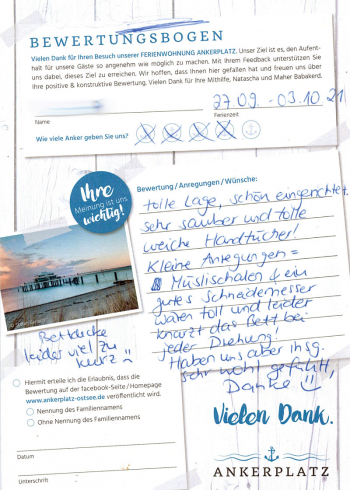 BEWERTUNGSBOGEN
Vielen Dank für Ihren Besuch unserer FERIENWOHNUNG ANKERPLATZ. Unser Ziel ist es, den Aufent-
halt für unsere Gäste so angenehm wie möglich zu machen. Mit Ihrem Feedback unterstützen Sie
uns dabei, dieses Ziel zu erreichen. Wir hoffen, dass Ihnen hier gefallen hat und freuen uns über
Ihre positive & konstruktive Bewertung. Vielen Dank für Ihre Mithilfe, Natascha und Maher Babakerd.
27.09. - 03.10.21
Name
Ferienzeit
Wie viele Anker geben Sie uns?
Ihre
Meinung ist uns
wichtig!
Bewertung / Anregungen / Wünsche:
tolle Lage, schön eingerichtet,
sehr sauber und tolle
weiche Handtücher!
Kleine Anregungen =
Müslischalen & ein
gutes Schneidemesser
wären toll und leider
knarzt das Bett bei
jeder Drehung!
Haben uns aber insg.
sehr wohl gefühlt,
Danke
Bettdecke
leider viel zu
kurz
Hiermit erteile ich die Erlaubnis, dass die
Bewertung auf der facebook-Seite / Homepage
www.ankerplatz-ostsee.de veröffentlicht wird.
Nennung des Familiennamens
Ohne Nennung des Familiennamens
Datum
Unterschrift
Vielen Dank.
ANKERPLATZ